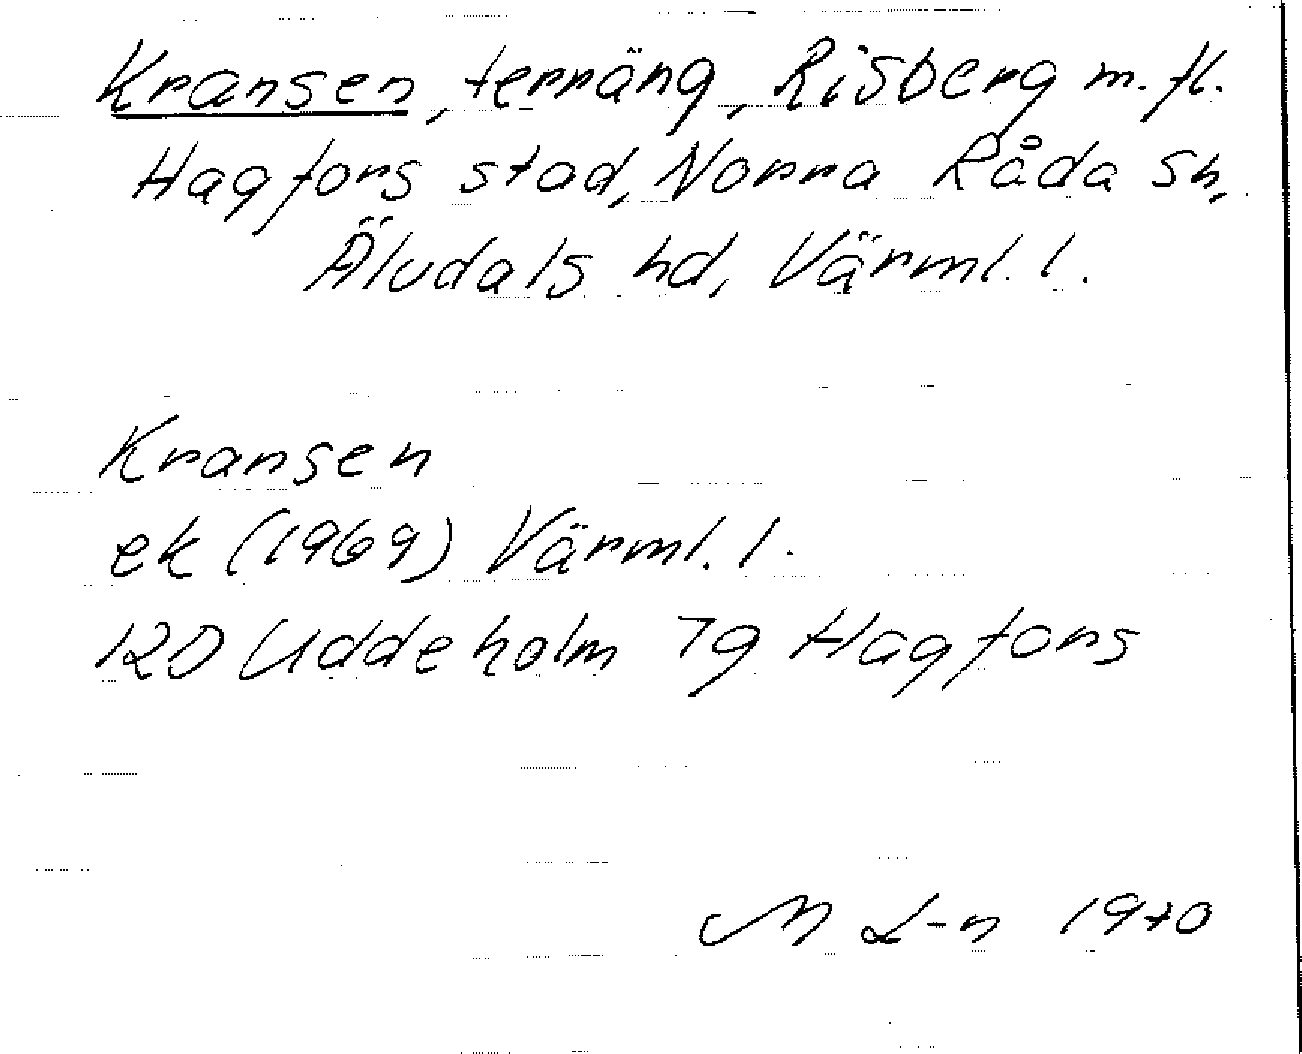 Kransen, terräng, Risberg m. fl.
Hagfors stad, Norra Råda sn,
Älvdals hd, Värml. l.
Kransen
ek (1969) Värml. l.
12D Uddeholm 7g Hagfors
M L-n 1970